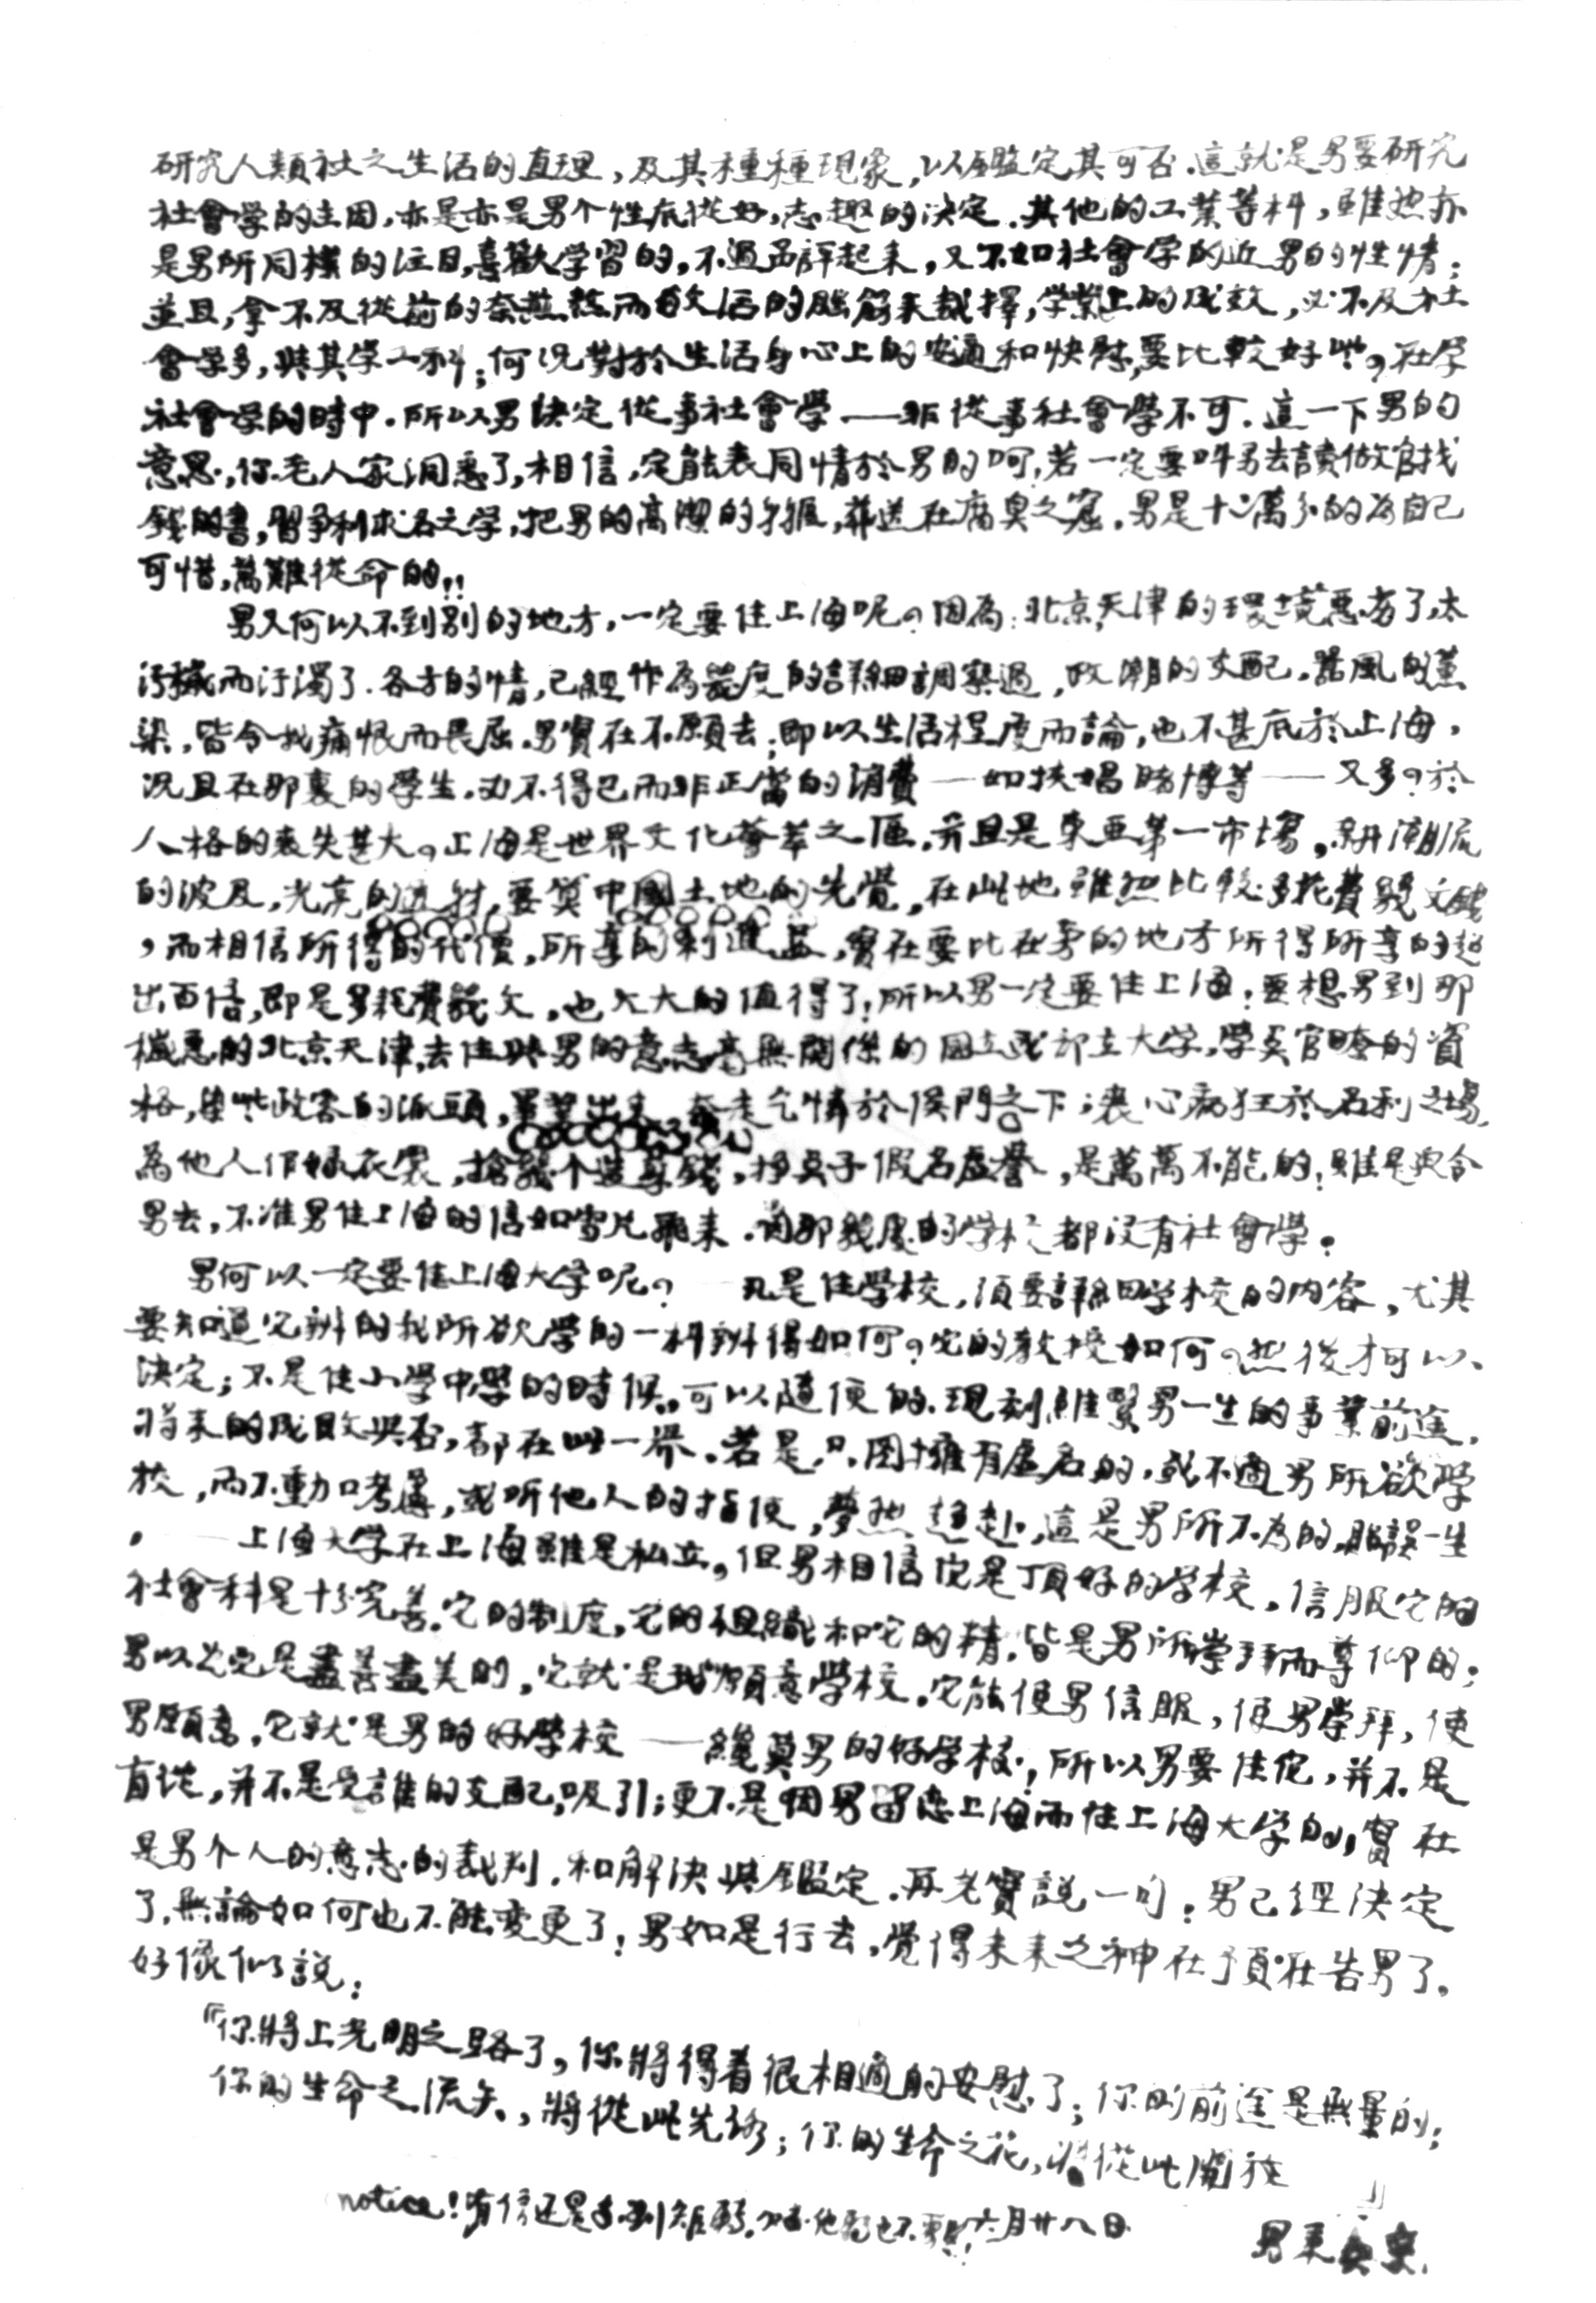 研究人類社之生活的直理，及其種種現象，以鑑定其可否．這就是男要研究
社會学的主因，亦是亦是男个性底從好，志趣的決定．其他的工業等科，雖然亦
是男所同樣的注目，喜歡学習的，不過品評起来，又不如社會学的近男的性情；
並且，拿不及從前的而的腦筋来裁擇，学業上的成效，必不及社
會学多，與其学工科；何況對於生活身心上的安適和快慰，要比較好些？在学
社會学的時中．所以男決定從事社會學——非從事社會學不可．這一下男的
意思，你老人家洞悉了，相信，定能表同情於男的呵，若一定要叫男去讀做官找
錢的書，習爭利求名之学，把男的高潔的，葬送在腐臭之窟．男是十二萬分的為自己
可惜，萬難從命的！！
男又何以不到別的地方，一定要住上海呢？因為：北京天津的環境惡劣了，太
汚穢而汙濁了．各方的情，已經作為幾度的詳細調察過，政潮的支配，惡風的薰
染，皆令我痛恨而畏屈．男實在不願去；即以生活程度而論，也不甚底於上海，
況且在那裏的學生．必不得已而非正當的消費——如挾娼賭博等——又多？於
人格的喪失甚大。上海是世界文化薈萃之區．并且是東亜第一市場，新潮流
的波及，光亮的，要算中國土地的先覺，在此地雖然比較多花費幾文錢
，而相信所得的代價，所享的利益，實在要比在旁的地方所得所享的超
出百倍，即是多耗費幾文，也大大的值得了！所以男一定要住上海！要想男到那
穢惡的北京天津，去住與男的意志毫無關係的国立或部立大学，學矣官的資
格，些政客的派頭，畢業出来，奔走乞憐於侯門之下；喪心病狂於名利之場，
為他人作嫁衣裳，搶幾个造孽錢，掙臭子假名虛譽，是萬萬不能的！雖是命
男去，不准男住上海的信如雪片飛来．因那幾處的学校都沒有社會學。
男何以一定要住上海大学呢？　凡是住學校，須要詳細学校的内容，尤其
要知道它辦的我所欲学的一科辦得如何？它的教授如何？然後才可以、
決定；不是住小学中學的時候，可以隨便的．現刻維男一生的事業前途，
將来的成敗與否，都在此一举．若是只圖擁有虛名的，或不適男所欲學
校，而不動口考慮，或听他人的指使，然赴，這是男所不為的，貽誤一生
．——上海大学在上海雖是私立，但男相信它是頂好的学校．信服它的
社會科是十分完善．它的制度，它的組織和它的精．皆是男所崇拜而尊仰的；
男以為它是盡善盡美的，它就是我願意學校．它能使男信服，使男崇拜，使
男願意．它就是男的好學校——男的好学校！所以男要住它，并不是
盲從，并不是受誰的支配，吸引；更不是因男留戀上海而住上海大学的，實在
是男个人的意志的裁判．和解決與鑑定．再老實説一句：男已經決定
了，無論如何也不能变更了！男如是行去，覺得未来之神在預在告男了，
好像似説：
『你將上光明之路了，你將得着很相適的安慰了；你的前途是無量的；
你的生命之流矢，將從此先；你的生命之花，將從此開在　』
notice！有信还是，他也不要！六月廿八日
男